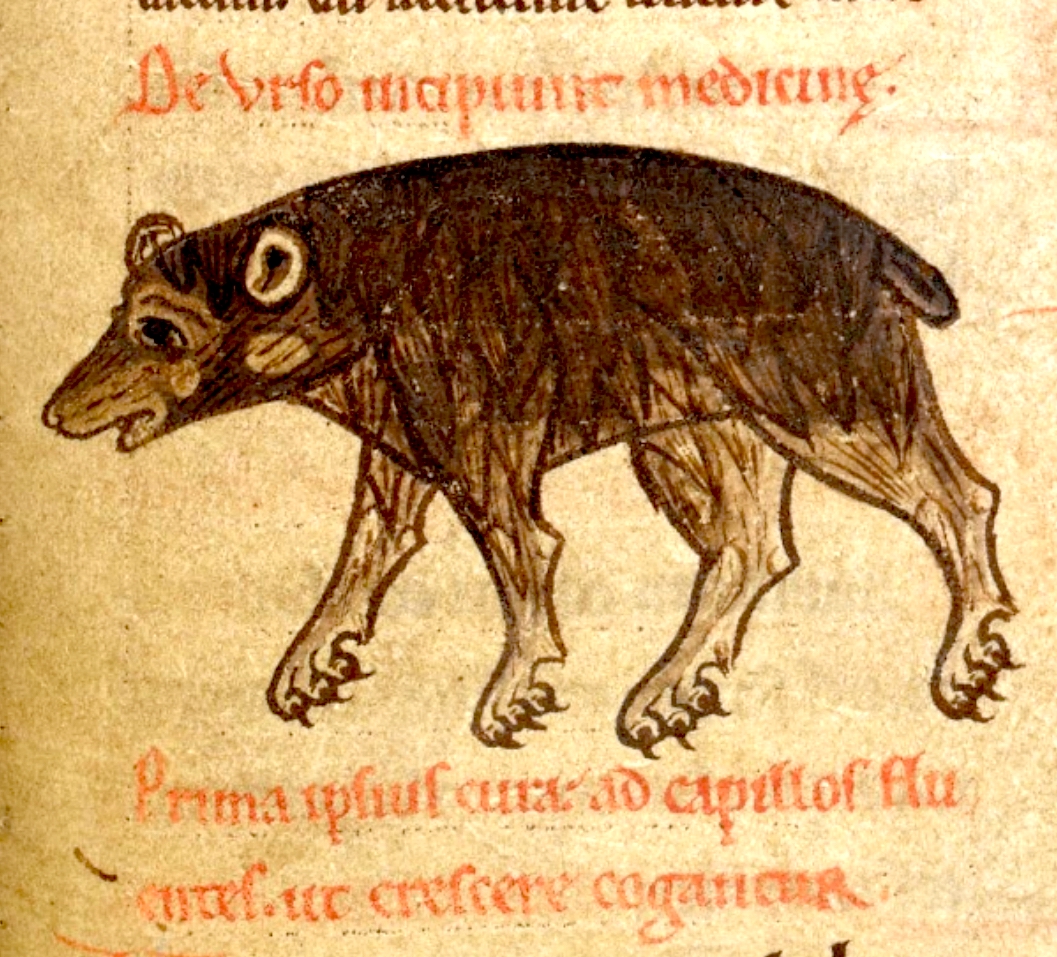 De Vrso incipiunt medicinę.
Prima ipsius cura· ad capillos flu
entes. ut crescere cogantur.